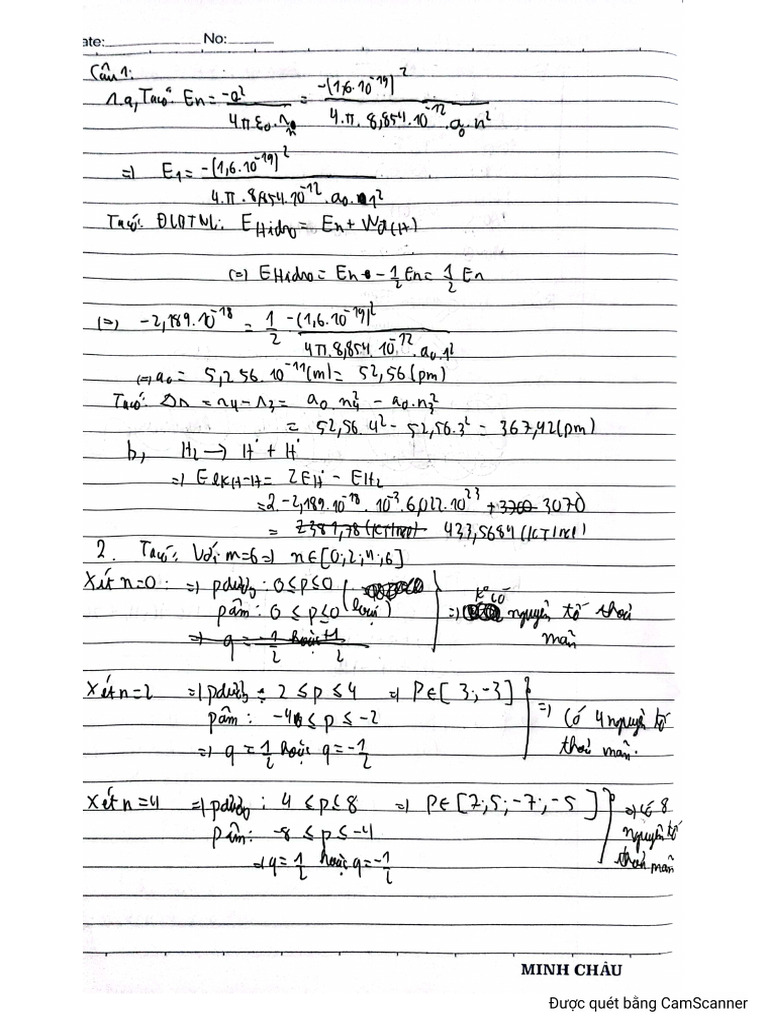 ate: No:
Câu 1:
1.a, Ta có: En = -e² / 4πε₀.rn = -(1,6.10⁻¹⁹)² / 4.π.8,854.10⁻¹².a₀.n²
=> E₁ = -(1,6.10⁻¹⁹)² / 4.π.8,854.10⁻¹².a₀.1²
Ta có: ĐLBTNL: E Hidro = En + Wđ(H)
(=) E Hidro = En - 1/2 En = 1/2 En
(=) -2,189.10⁻¹⁸ = 1/2 -(1,6.10⁻¹⁹)² / 4π.8,854.10⁻¹².a₀.1²
(=) a₀ = 5,256.10⁻¹¹(m) = 52,56(pm)
Ta có: Δr = r₄ - r₃ = a₀.n₄² - a₀.n₃²
= 52,56.4² - 52,56.3² = 367,92(pm)
b, H₂ → H˙ + H˙
=) Elk H-H = 2EH˙ - EH₂
= 2.-2,189.10⁻¹⁸.10⁻³.6,022.10²³ + 3070
= 433,5684 (KJ/mol)
2. Ta có: Với m=6 => n∈[0;2;4;6]
Xét n=0: => p dương: 0≤p≤0 (loại)
p âm: 0≤p≤0 => K° có nguyên tố thoả mãn
Xét n=2 => p dương: 2≤p≤4 => P∈[3;-3]
p âm: -4≤p≤-2 => Có 4 nguyên tố thoả mãn.
=> q = 1/2 hoặc q = -1/2
Xét n=4 => p dương: 4≤p≤8 => P∈[7;5;-7;-5] => có 8 nguyên tố thoả mãn
p âm: -8≤p≤-4
=> q = 1/2 hoặc q = -1/2
MINH CHÂU
Được quét bằng CamScanner